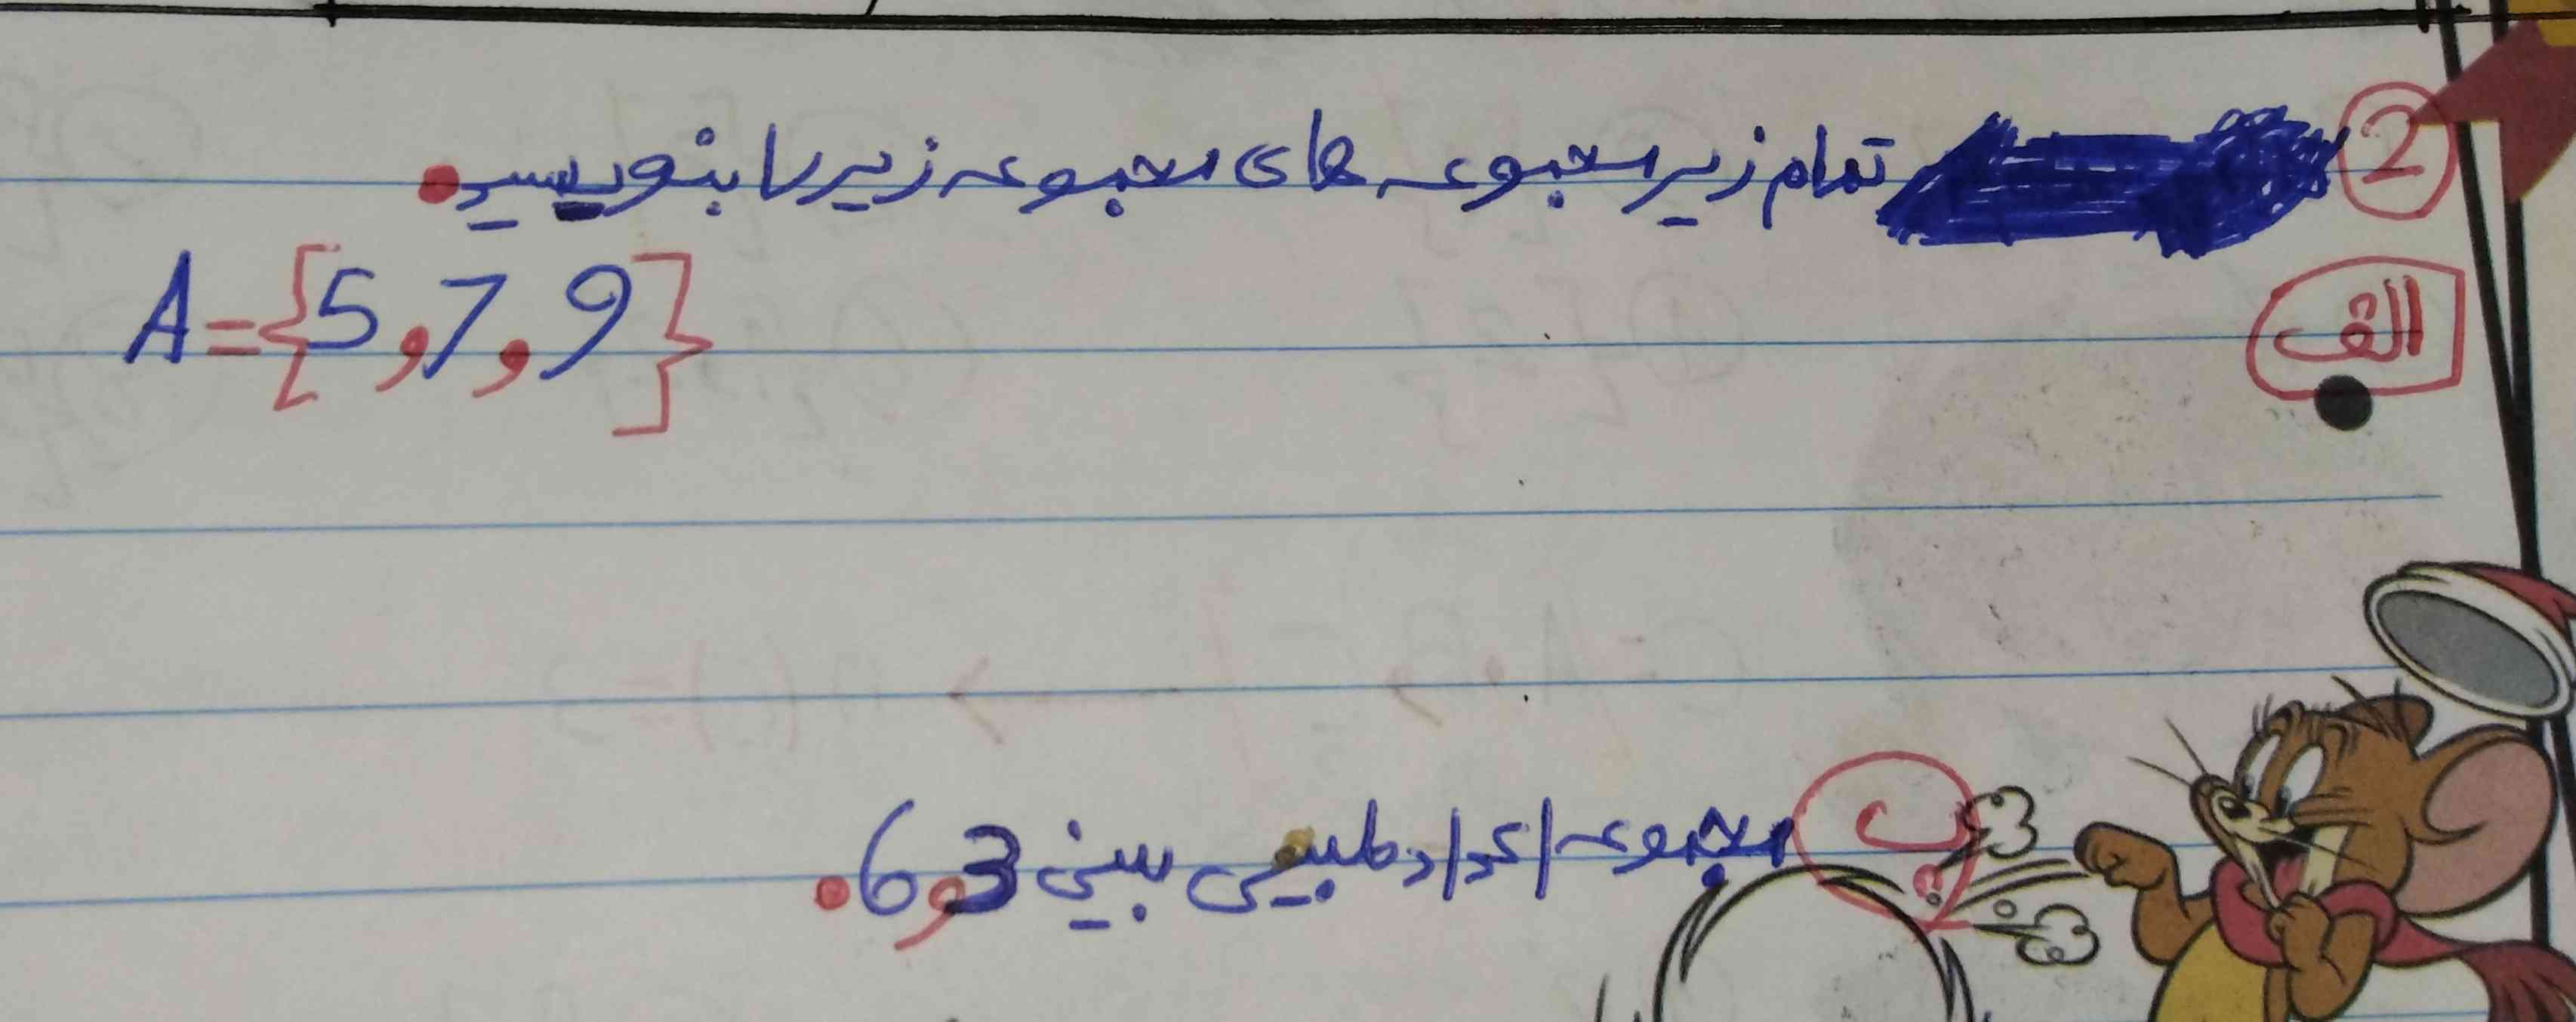 2 تمام زیرمجموعه های مجموعه زیر را بنویسید.
الف
A={5,7,9}
ب مجموعه اعداد طبیعی بین 3 و 6.